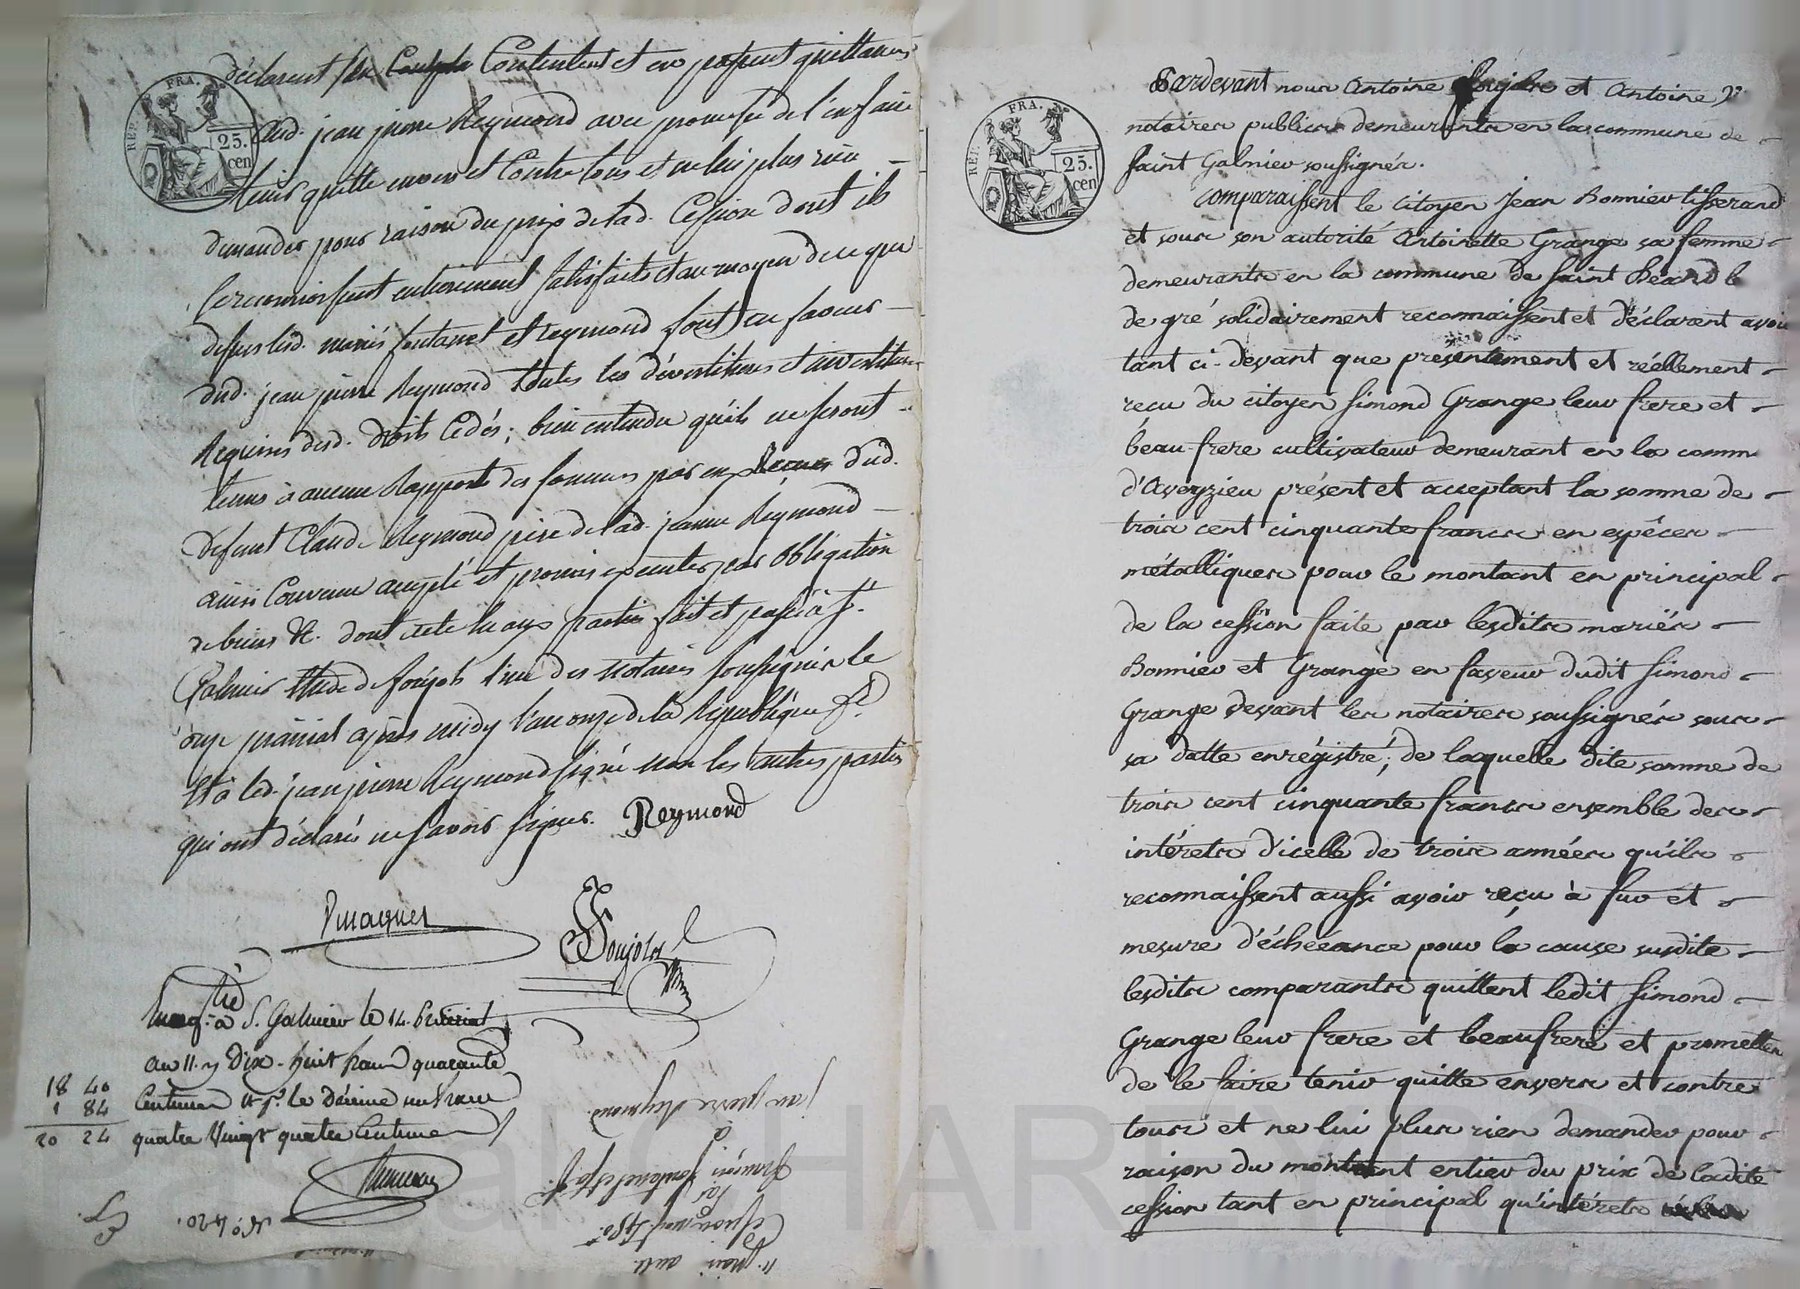 déclarent
Contentent et en passent quittances
aud. jean pierre Reymond avec promesse de l'en faire
tenir quitte envers et Contre tous et ne lui plus rien
demander pour raison du prix de lad. Cession dont ils
se reconnoissent entierement satisfaits et au moyen de ce que
dessus lesd. mariés fontanet et Reymond font en faveur
dud. jean pierre Reymond toutes les dévestitures et investitures
Requises desd. droits Cedés; bien entendu qu'ils ne seront
tenus à aucun Rapport des sommes par eux Recues dud.
defunt Claude Reymond pere de lad. jeanne Reymond
ainsi Convenu accepté et promis executer par obligation
de biens &c. dont acte lu aux parties fait et passé à St.
Galmier Etude de foujols l'un des Notaires soussignés le
onze prairial après midy l'an onze de la République fse.
Et a led. jean pierre Reymond signé non les autres parties
qui ont déclarés ne savoir signer. Reymond
foujols
REP. FRA.
25.
cen
Enregtré à S. Galmier le 14. Prairial
an 11. Dix-huit francs quarante
Centimes et pr. le Décime un franc
quatre Vingt quatre Centimes
18 40
1 84
20 24
jean pierre Reymond
à
françois fontanet et sa f.
11. prairial an 11.
REP. FRA.
25.
cen
Pardevant nous Antoine foujols et Antoine
notaires publics demeurants en la commune de
saint Galmier soussignés.
Comparaissent le citoyen Jean Bonnier tisserand
et sous son autorité Antoinette Grange sa femme
demeurants en la commune de saint héand le
de gré solidairement reconnaissent et déclarent avoir
tant ci-devant que présentement et réellement
recu du citoyen Simond Grange leur frere et
beau-frere cultivateur demeurant en la comm
d'Aveyzieu présent et acceptant la somme de
trois cent cinquante francs en espèces
métalliques pour le montant en principal
de la cession faite par lesdits mariés
Bonnier et Grange en faveur dudit Simond
Grange devant les notaires soussignés sous
sa datte enrégistré; de laquelle dite somme de
trois cent cinquante francs ensemble des
intérets d'icelle de trois années qu'ils
reconnaissent aussi avoir reçu à fur et
mesure d'échéeance pour la cause susdite
lesdits comparants quittent ledit Simond
Grange leur frere et beaufrere et promettent
de le faire tenir quitte envers et contre
tous et ne lui plus rien demander pour
raison du montant entier du prix de ladite
cession tant en principal qu'intérets